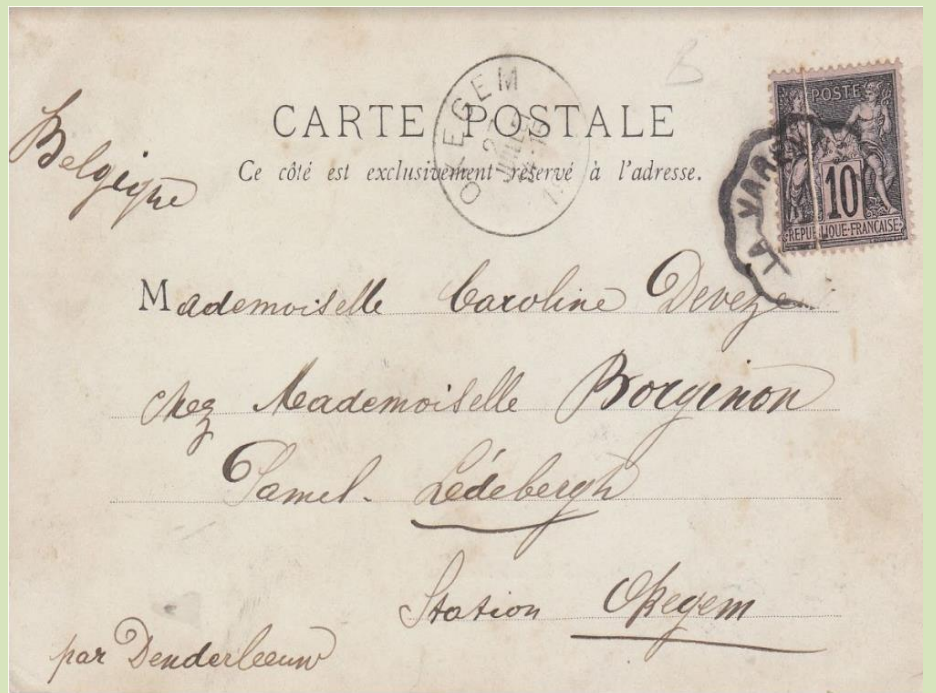 CARTE POSTALE
Ce côté est exclusivement réservé à l'adresse.
OKEGEM
POSTE
10
REPUBLIQUE-FRANÇAISE
LA VAREN
B
Belgique
Mademoiselle Caroline Deveze
chez Mademoiselle Borginon
Pamel. Lédebergh
Station Okegem
par Denderleeuw